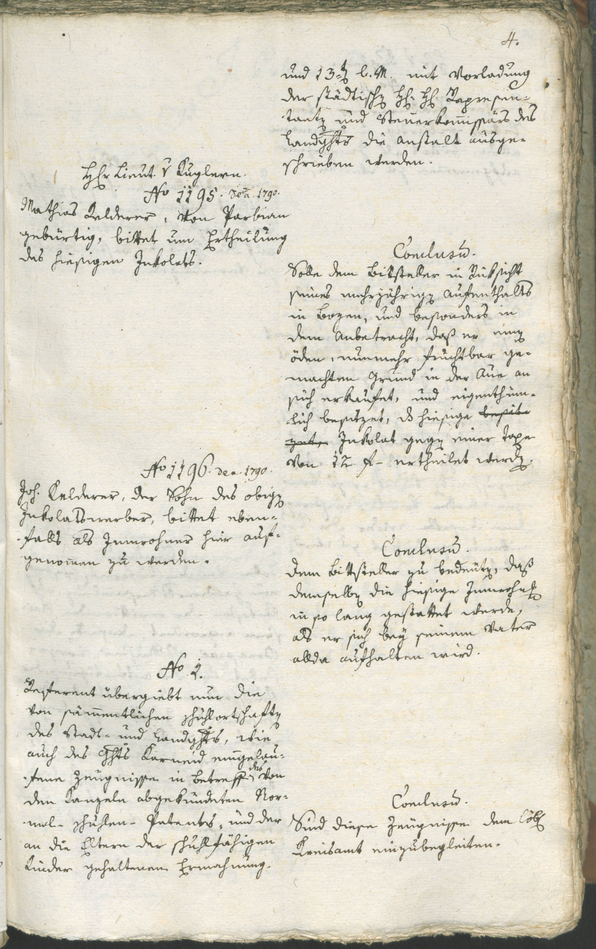 4.
und 13t. l. M. mit Vorladung
der städtischen HH. HH. Repräsen-
tanten und Steuerkommissärs des
Landgchts die Anstalt ausge-
schrieben werden.
Hhr Lieut. v. Kuglern.
No 1195. de a. 1790.
Mathias Kelderer, von Barbian
gebürtig, bittet um Ertheilung
des hiesigen Inkolats.
Conclusum.
Solle dem Bittsteller in Rüksicht
seines mehrjährigen Aufenthalts
in Bozen, und besonders in
dem Anbetracht, daß er einen
öden, nunmehr fruchtbar ge-
machten Grund in der Aue an
sich erkaufet, und eigenthüm-
lich besitzet, das hiesige
Inkolat gegen einer Taxe
von 12 f. ertheilet werden.
No 1196. de a. 1790.
Joh. Kelderer, der Sohn des obigen
Inkolatswerber, bittet eben-
falls als Innwohner hier auf-
genommen zu werden.
Conclusum.
Dem Bittsteller zu bedeuten, daß
demselben die hiesige Innwohnschaft
in so lang gestattet werde,
als er sich bey seinem Vater
allda aufhalten wird.
No 2.
Referent übergiebt nun die
von sämmentlichen Schulortschaften
des Stadt- und Landgchts, wie
auch des Gchts Karneid eingelau-
fene Zeugnisse in Betreff des von
den Kanzeln abgekündeten Nor-
mal-Schulen-Patents, und der
an die Eltern der schulfähigen
Kinder gehaltenen Ermahnung.
Conclusum.
Sind diese Zeugnisse dem löbl.
Kreisamt einzubegleiten.